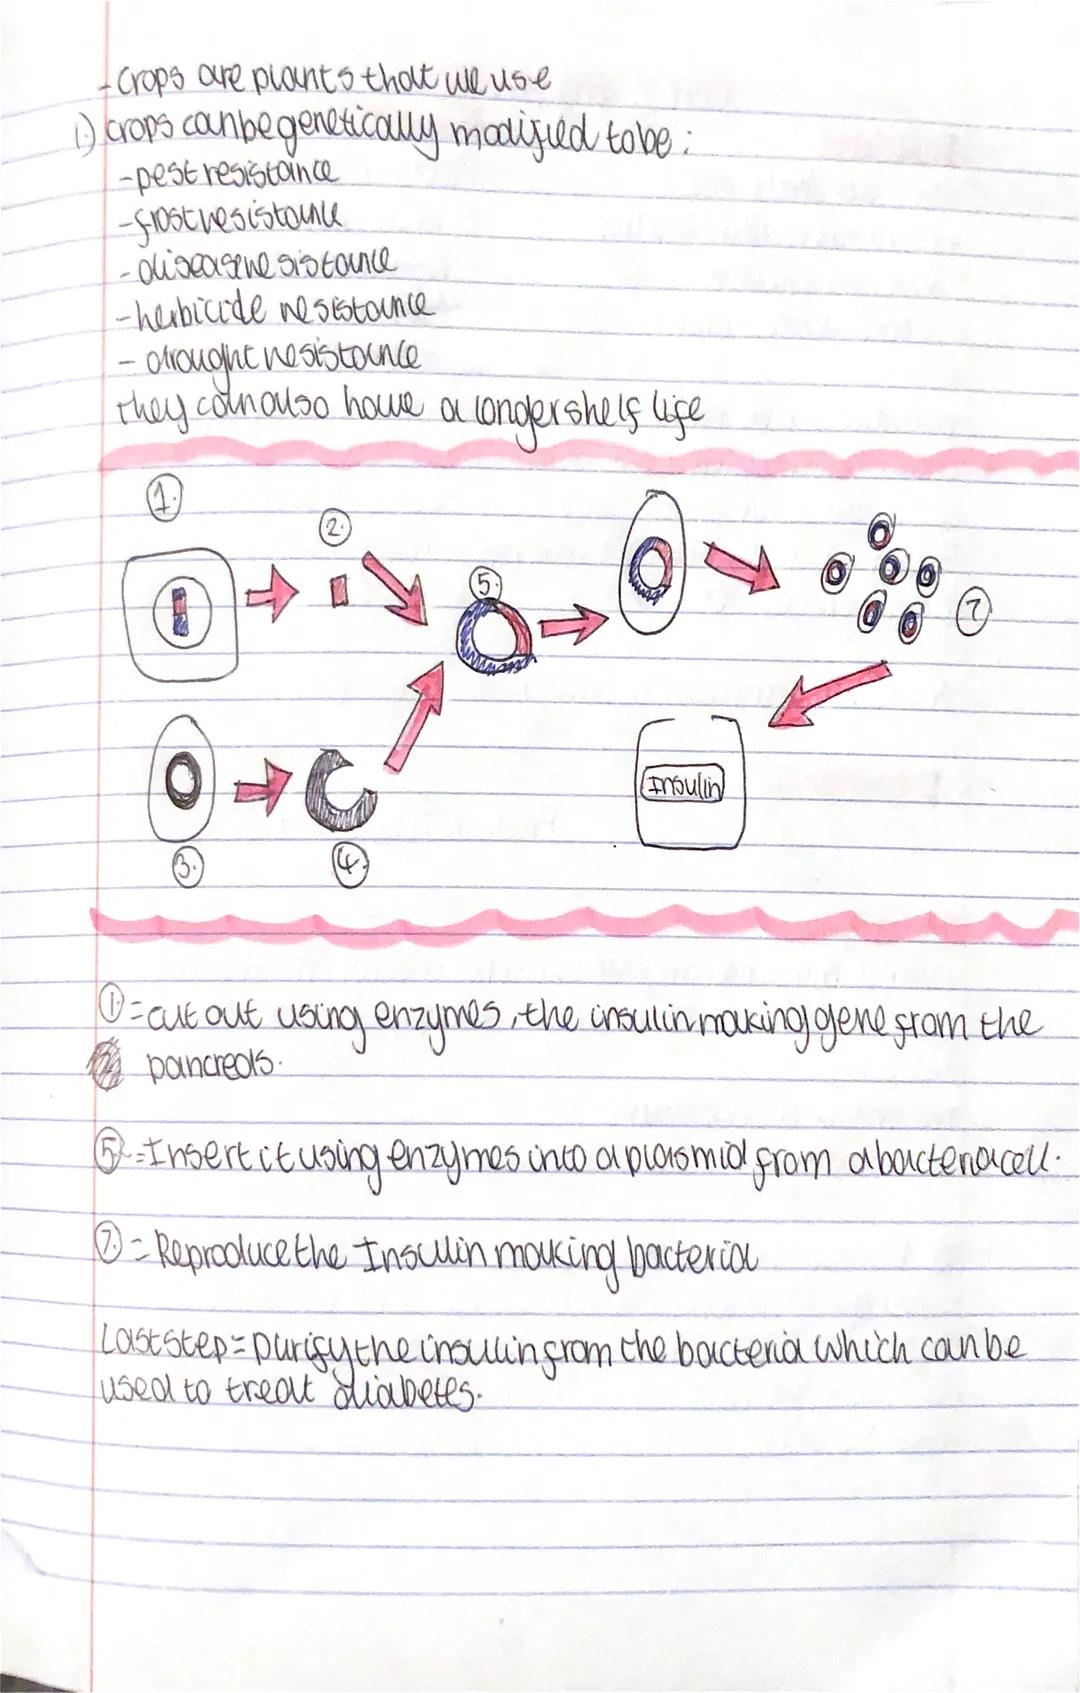 - Crops are plants that we use
1.) crops can be genetically modified to be :
- pest resistance
- frost resistance
- disease resistance
- herbicide resistance
- drought resistance
they can also have a longer shelf life
1.
2.
5.
7
Insulin
3.
4.
1. = cut out using enzymes, the insulin making gene from the
pancreas.
5. = Insert it using enzymes into a plasmid from a bacteria cell.
7. = Reproduce the Insulin making bacteria
Last step = purify the insulin from the bacteria which can be
used to treat diabetes.